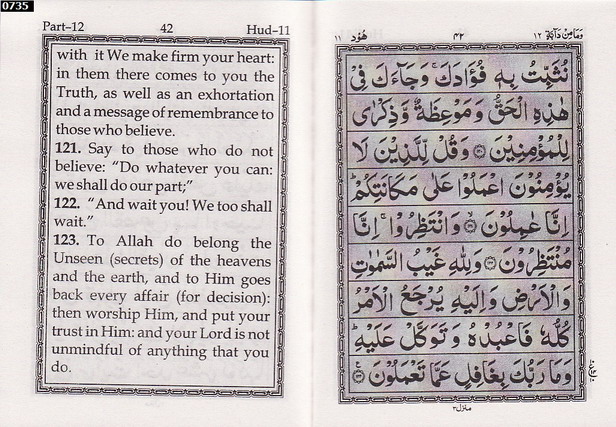 0735
Part-12 42 Hud-11
with it We make firm your heart:
in them there comes to you the
Truth, as well as an exhortation
and a message of remembrance to
those who believe.
121. Say to those who do not
believe: “Do whatever you can:
we shall do our part;”
122. “And wait you! We too shall
wait.”
123. To Allah do belong the
Unseen (secrets) of the heavens
and the earth, and to Him goes
back every affair (for decision):
then worship Him, and put your
trust in Him: and your Lord is not
unmindful of anything that you
do.
وَمَا مِنْ دَآبَّةٍ ١٢ ٤٢ هُوْد ١١
نُثَبِّتُ بِهٖ فُؤَادَكَ وَجَآءَكَ فِيْ
هٰذِهِ الْحَقُّ وَمَوْعِظَةٌ وَّذِكْرٰى
لِلْمُؤْمِنِيْنَ ١٢٠ وَقُلْ لِّلَّذِيْنَ لَا
يُؤْمِنُوْنَ اعْمَلُوْا عَلٰى مَكَانَتِكُمْ ؕ
اِنَّا عٰمِلُوْنَ ١٢١ وَانْتَظِرُوْا ۚ اِنَّا
مُنْتَظِرُوْنَ ١٢٢ وَلِلّٰهِ غَيْبُ السَّمٰوٰتِ
وَالْاَرْضِ وَاِلَيْهِ يُرْجَعُ الْاَمْرُ
كُلُّهٗ فَاعْبُدْهُ وَتَوَكَّلْ عَلَيْهِ ؕ
وَمَا رَبُّكَ بِغَافِلٍ عَمَّا تَعْمَلُوْنَ ١٢٣
منزل ٣